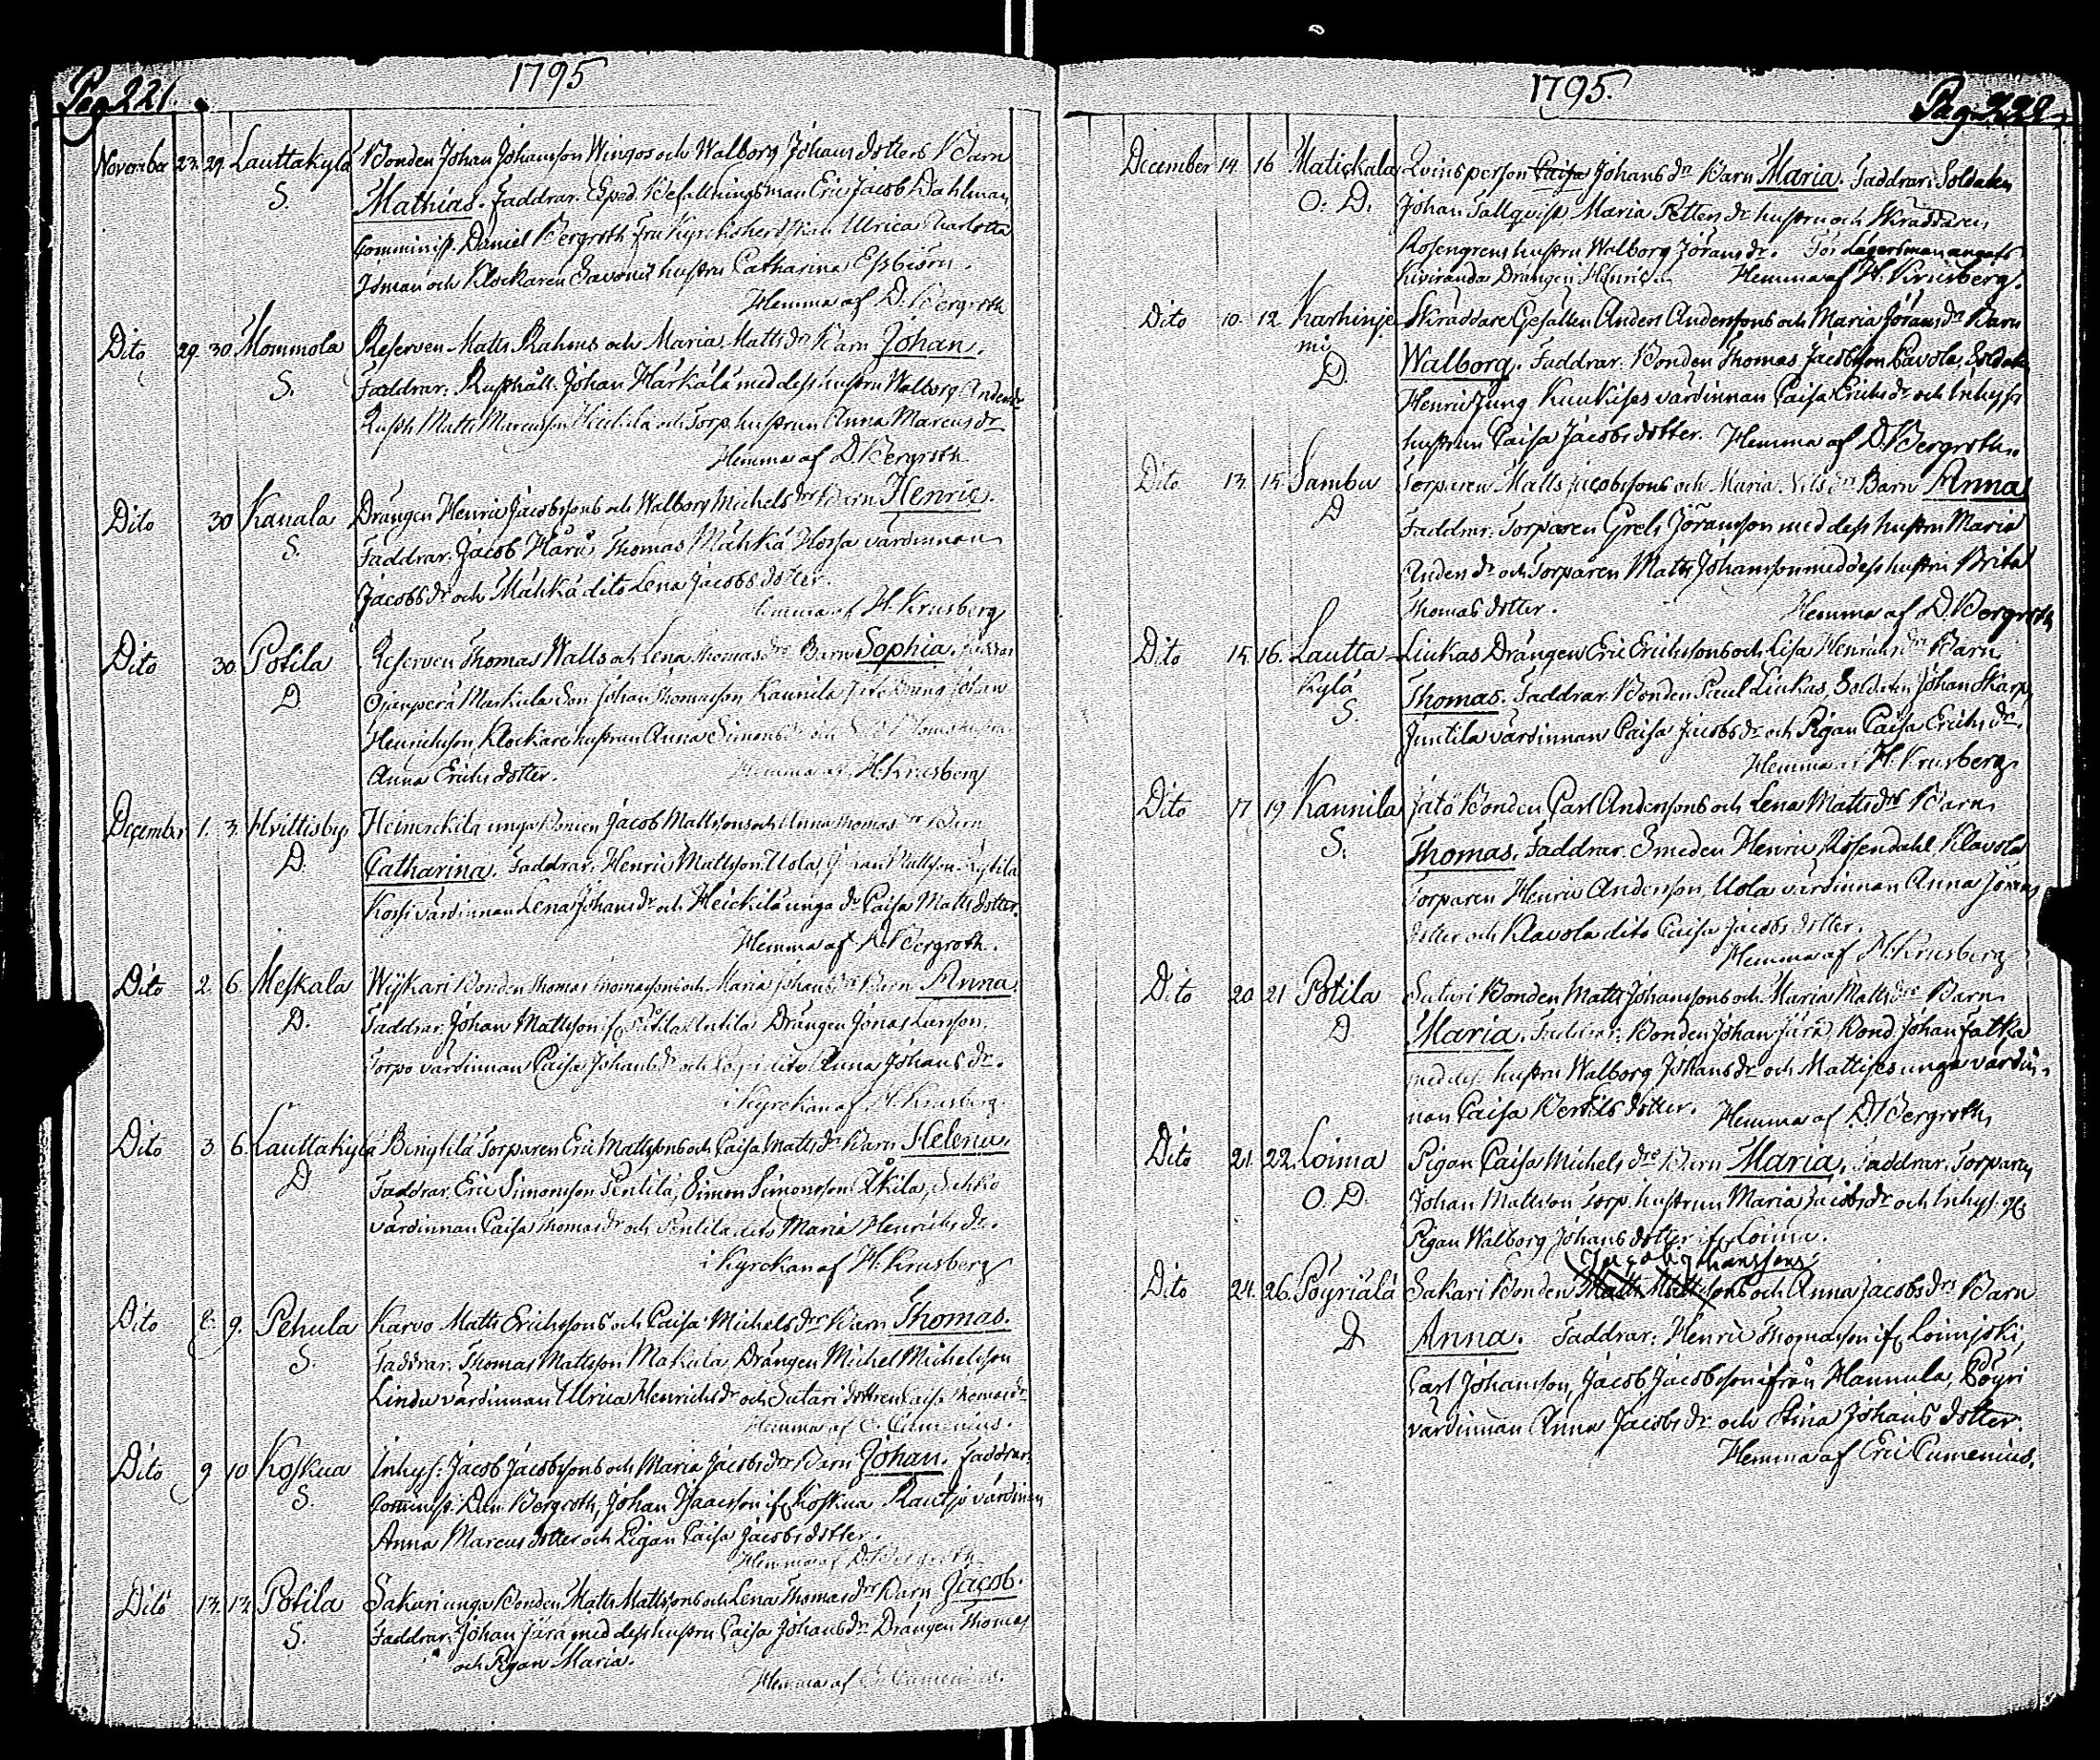 Pag 221.
1795
November 23. 29. Lauttakylä Bonden Johan Johansson Wingos och Walborg Johans dotters Barn
S. Mathias. Faddrar. Exped. Befallningsman Eric Jacob Dahlman
Comminist. Daniel Bergroth Fru Kyrckoherdskan Ulrica Charlotta
Idman och Klockaren Savonii hustru Catharina Essbiörn.
Hemma af D. Bergroth
Dito 29. 30 Mommola Reserven Matts Rahms och Maria Matts drs Barn Johan.
S. Faddrar: Rusthåll. Johan Härkälä med dess hustru Walborg Anders dr
Rusth. Matts Marcusson Heickilä och Torp. hustrun Anna Marcus dr
Hemma af D. Bergroth
Dito 30 Kanala Drängen Henric Jacobssons och Walborg Michels drs Barn Henric.
S. Faddrar. Jacob Håru Thomas Mähkä Hossa värdinnan
Jacobs dr och Mähkä dito Lena Jacobs dotter.
Hemma af H. Krusberg
Dito 30. Potila Reserven Thomas Walls och Lena Thomas drs Barn Sophia. Faddrar
D. Ojanperä Markula Son Johan Thomasson Kaunila Jätö Johan
Henrichsson, Klockare hustrun Anna Simons dr och
Anna Erichs dotter. Hemma af H. Krusberg
December 1. 3. Hvittisby Heinickilä unga Bonden Jacob Mattssons och Anna Thomas drs Barn
D. Catharina. Faddrar. Henric Mattsson Uola, Johan Mattsson Kytilä
Kossi värdinnan Lena Johans dr och Heickilä unga do Caisa Matts dotter.
Hemma af D. Bergroth.
Dito 2. 6. Meskala Wijkari Bonden Thomas Thomassons och Maria Johans drs Barn Anna
D. Faddrar. Johan Mattsson if. Antila Drängen Jonas Larsson.
Torpo värdinnan Caisa Johans dr och dito Anna Johans dr.
i Kyrckan af H. Krusberg.
Dito 3. 6. Lauttakylä Torparen Eric Mattssons och Caisa Matts drs Barn Helena.
D Faddrar. Eric Simonsson Pentilä, Simon Simonsson Äkilä, Sickiö
värdinnan Caisa Thomas dr och Pentilä dito Maria Henrichs dr.
i Kyrckan af H. Krusberg
Dito 8. 9. Pehula Karvo Matts Erichssons och Caisa Michels drs Barn Thomas.
S. Faddrar. Thomas Mattsson Makula, Drängen Michel Michelsson
Lindu värdinnan Ulrica Henrichs dr och Sutari dottren Caisa Thomas dr
Hemma af E. Cumenius.
Dito 9 10 Koskua Inhys: Jacob Jacobssons och Maria Jacobs drs Barn Johan. Faddrar.
S. Comminist: Dan. Bergroth, Johan Isaacsson if. Koskua. Rautjo värdinan
Anna Marcus dotter och Pigan Caisa Jacobs dotter.
Hemma af D. Bergroth
Dito 13. 13. Potila Sakari unga Bonden Matts Mattssons och Lena Thomas drs Barn Jacob.
S. Faddrar. Johan Järä med dess hustru Caisa Johans dr Drängen Thomas
och Pigan Maria.
Hemma af E. Cumenius.
1795.
Pag. 222.
December 14. 16 Matickala Qvinsperson Caisa Johans drs Barn Maria. Faddrar. Soldaten
O. D. Johan Tallqvist, Maria Petters dr hustru och Skräddaren
Rosengrens hustru Walborg Jörans dr. För Lägersman angafs
Kiviranda Drängen Henric. Hemma af H. Krusberg.
Dito 10. 12 Karhinje- Skräddare Gesällen Anders Anderssons och Maria Jörans drs Barn
mi Walborg. Faddrar. Bonden Thomas Jacobsson Pavola, Soldaten
D. Henric Jung Kuukises värdinnan Caisa Erichs dr och Inhyses
hustrun Caisa Jacobs dotter. Hemma af D. Bergroth.
Dito 13. 15. Sambu Torparen Matts Jacobssons och Maria Nils drs Barn Anna
D Faddrar: Torparen Grels Jöransson med dess hustru Maria
Anders dr och Torparen Matts Johansson med dess hustru Brita
Thomas dotter. Hemma af D. Bergroth
Dito 15 16. Lautta- Liukas Drängen Eric Erichssons och Lisa Henrichs drs Barn
kylä Thomas. Faddrar. Bonden Paul Liukas, Soldaten Johan Skarp,
S Juntila värdinnan Caisa Jacobs dr och Pigan Caisa Erichs dr.
Hemma af H. Krusberg
Dito 17 19 Kannila Jätö Bonden Carl Anderssons och Lena Matts drs Barn
S. Thomas. Faddrar. Smeden Henric Rosendahl, Klavola
Torparen Henric Andersson, Uola värdinnan Anna Jörans
dotter och Klavola dito Caisa Jacobs dotter.
Hemma af H. Krusberg
Dito 20 21 Potila Sutari Bonden Matts Johanssons och Maria Matts drs Barn
D Maria. Faddrar: Bonden Johan Järä, Bond. Johan Fatka
med dess hustru Walborg Johans dr och Mattises unga värdin-
nan Caisa Bertils dotter. Hemma af D. Bergroth
Dito 21. 22. Loima Pigan Caisa Michels drs Barn Maria. Faddrar. Torparen
O. D. Johan Mattsson Torp. hustrun Maria Jacobs dr och Inhys.
Pigan Walborg Johans dotter if. Loima.
Jacob Johanssons
Dito 24. 26. Pöyriälä Sakari Bonden Matts Mattssons och Anna Jacobs drs Barn
D Anna. Faddrar: Henric Thomasson if. Loimjoki,
Carl Johansson, Jacob Jacobsson ifrån Hannula, Pöyri
värdinnan Anna Jacobs dr och Stina Johans dotter.
Hemma af Eric Cumenius.